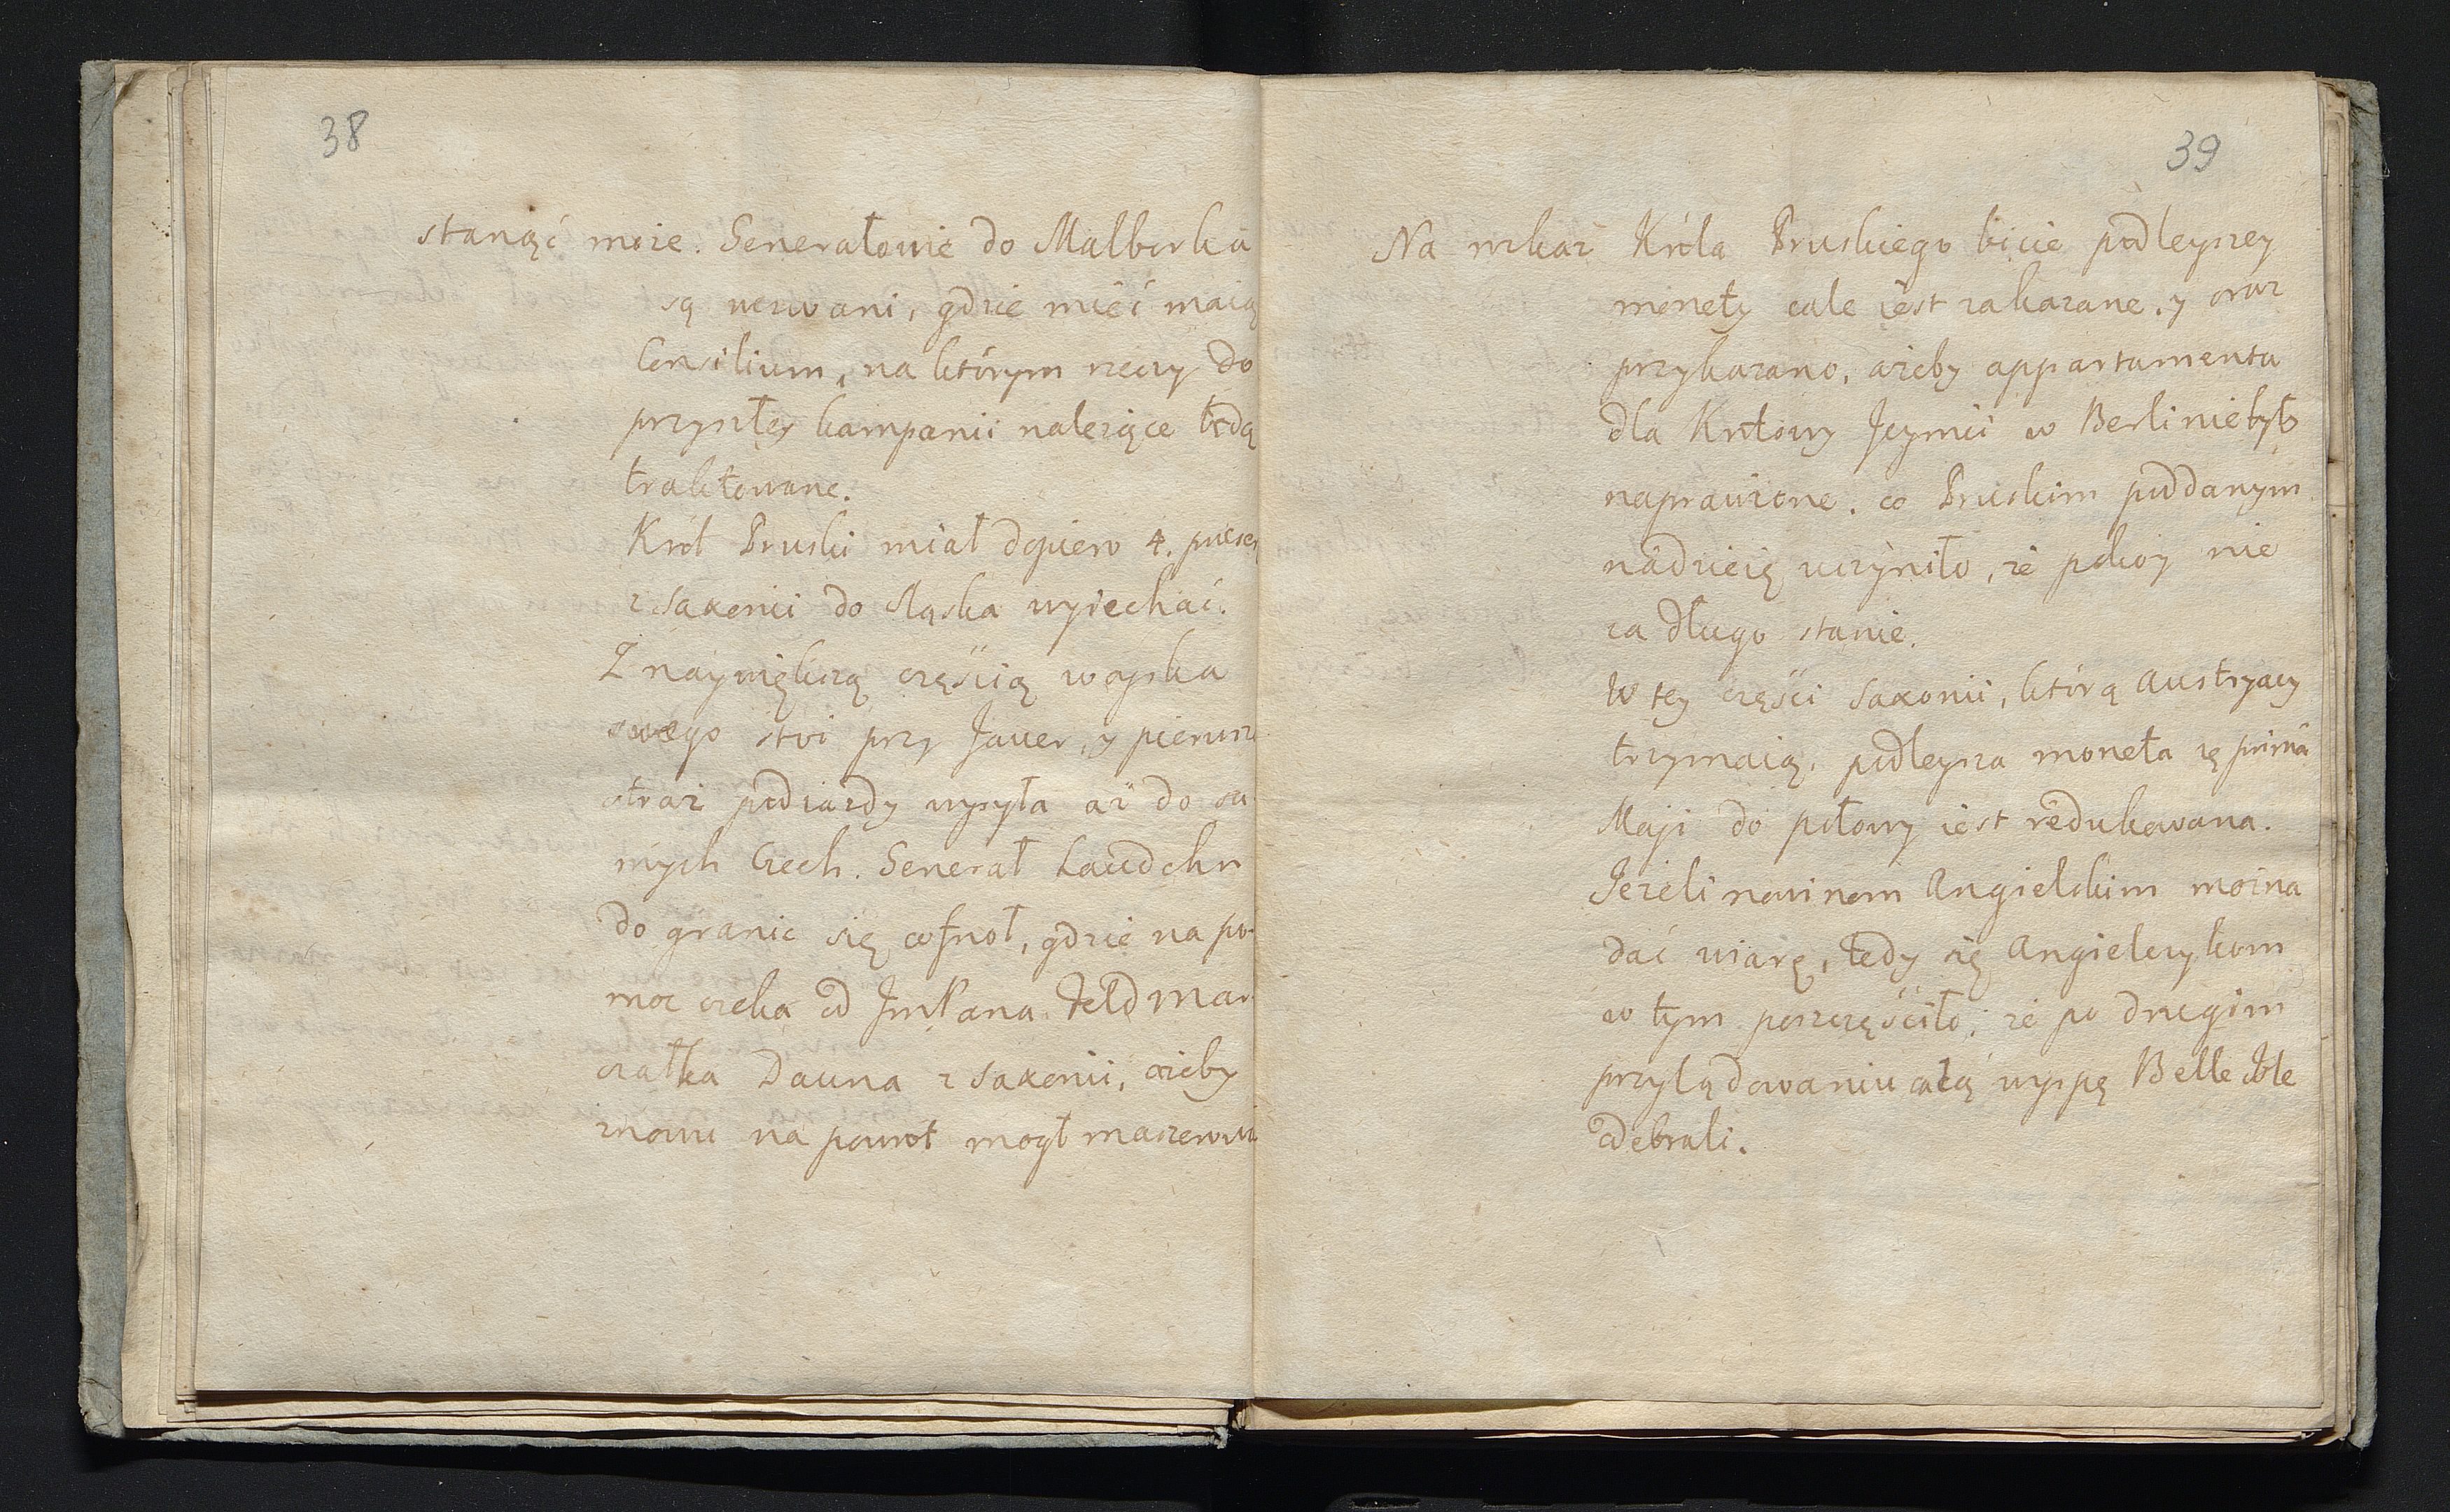 38
stanąć może. Generałowie do Malborka
są wezwani, gdzie mieć maią
Consilium, na którym rzeczy do
przyszłey kampanii należące będą
traktowane.
Król Pruski miał dopiero 4. praesen
z Saxonii do Sląska wyiechać.
Z naywiększą częścią woyska
swego stoi przy Jauer, y pierwsz
straż podiazdy wysyła aż do sa
mych Czech. Generał Laudohn
do granic się cofnoł, gdzie na po-
moc czeka od JmPana Feldmar-
szałka Dauna z Saxonii, ażeby
znowu na powrot mogł maszerow
39
Na rozkaz Króla Pruskiego bicie podleyszey
monety cale iest zakazane. y oraz
przykazano, ażeby appartamenta
dla Krolowy Jeymci w Berlinie były
naprawione. co Pruskim poddanym
nadzieię uczyniło, że pokoy nie
za długo stanie.
W tey części Saxonii, którą Austryacy
trzymaią, podleysza moneta z primâ
Maji do połowy iest redukowana.
Jeżeli nowinom Angielskim można
dać wiarę, tedy się Angielczykom
w tym poszczęściło, że po drugim
przylądowaniu całą wyspę Belle Isle
odebrali.